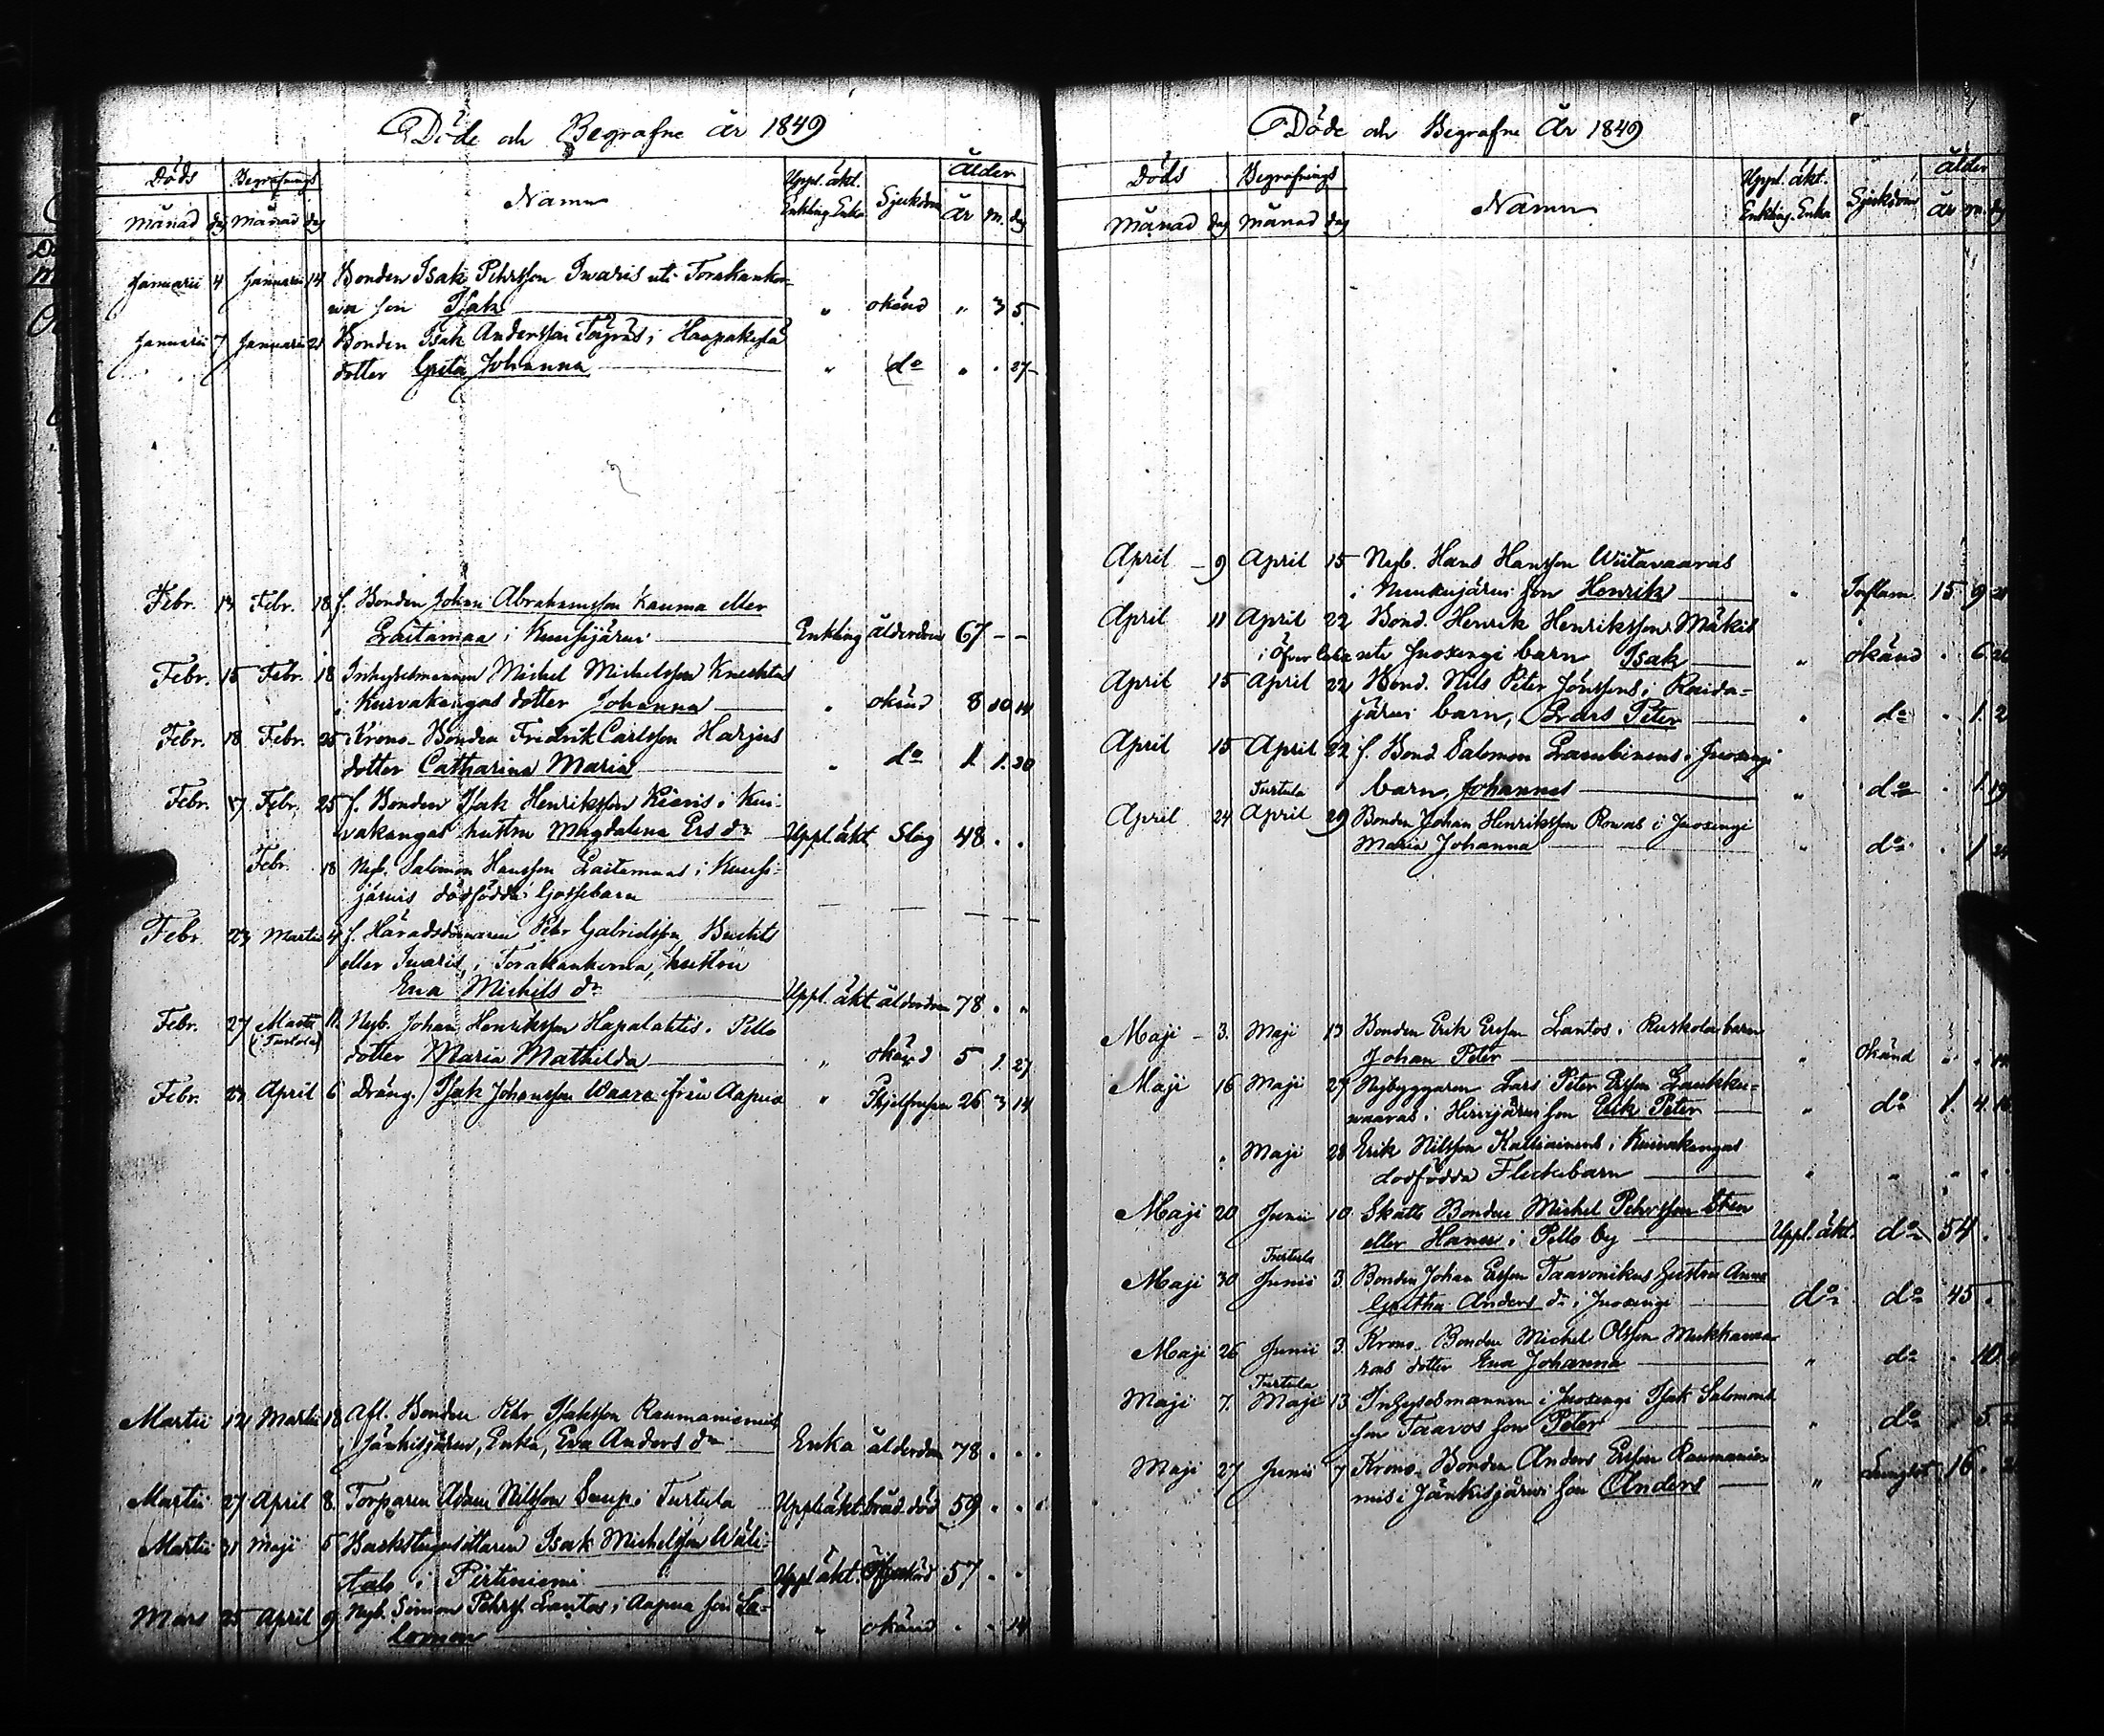 Döde och Begrafne År 1849
Döds Begrafnings Namn Uppl. äkt. Sjukdom Ålder
Månad dag Månad dag Enkling Enka År M. dag
Januarii 4 Januarii 14 Bonden Isak Pehrsson Iwaris uti Torakanko-
wa son Isak " okänd " 3 5
Januarii 7 Januarii 21 Bonden Isak Andersson i Haapakylä
dotter Greta Johanna " do " . 27
Febr. Febr. 18 f. Bonden Johan Abrahamsson Kauma eller
Laitamaa i Kuusijärvi Enkling ålderdom 67 - -
Febr. 15 Febr. 18 Inhysesmannen Michel Michelsson Knechtas
i Kuivakangas dotter Johanna " okänd 8 10 14
Febr. 18 Febr. 25 Krono-Bonden Fredrik Carlsson Harjus
dotter Catharina Maria " do 1. 1. 20
Febr. 17 Febr. 25 f. Bonden Isak Henriksson i Kui-
vakangas hustru Magdalena Ersdr Uppl. äkt Slag 48 . .
Febr. 18 Nyb. Salomon Hansson Laitamaas i Kuusi-
järvis dödfödda Gossebarn
Febr. 23 Martii 4 f. Häradsdomaren Pehr Gabrielsson Buchts
eller Iwaris, i Torakankowa, hustru
Eva Michels dr Uppl. äkt ålderdom 78 . "
Febr. 27 Martii 11. Nyb. Johan Henriksson Hapalahtis i Pello
(i Turtola) dotter Maria Mathilda " okänd 5 1. 27
Febr. April 6 Dräng. Isak Johansson Waara från Aapua " Ihjelfrusen 26 3 14
Martii 12 Martii 18 Afl. Bonden Pehr Isaksson Raumaniemis
i Jänkisjärvi, Enka, Eva Anders dr Enka ålderdom 78 . . .
Martii 27 April 8. Torparen Adam Nilsson i Turtula Uppl. äkt. bråd död 59 . .
Martii 31 Maji 5 Backstugusittaren Isak Michelsson Wäli-
talo i Pirtiniemi Uppl. äkt. 57 . .
Mars 25 April 9. Nyb. Simon Pehrss. Lantos i Aapua son Sa-
lomon " okänd . . 14
Döde och Begrafne År 1849
Döds Begrafnings Namn Uppl. äkt. Sjukdom ålder
Månad dag Månad dag Enkling. Enka År m. dag
April 9 April 15 Nyb. Hans Hansson Wiitavaaras
i son Henrik " Inflam. 15 9
April 11 April 22 Bond. Henrik Henriksson Mäkis
uti Juoxengi barn Isak " okänd . 6
April 15 April 22 Bond. Nils Peter Jönssons i Raida-
järvi barn, Lars Peter " do . 1. 2
April 15 April 22 f. Bond. Salomon Lambinens i Juoxengi
Turtula barn, Johannes " do . 1. 19
April 24 April 29 Bonden Johan Henriksson Rowas i Juoxengi
Maria Johanna " do . 1
Maji 3. Maji 13 Bonden Erik Ersson Lantos i Ruskola barn
Johan Peter " okänd " .
Maji 16 Maji 27 Nybyggaren Lars Peter Ersson Laukku-
waaras i Hirvijärvi son Erik Peter " do 1. 4.
" Maji 28 Erik Nilsson Kallioinens i Kuivakangas
dödfödda Flickebarn " " " "
Maji 20 Junii 10 Skatte Bonden Michel Pehrsson Sten
eller Hannu i Pello by Uppl. äkt. do 54 .
Turtula
Maji 30 Junii 3 Bonden Johan Ersson Taavonikus hustru Anna
Greta Anders dr i Juoxengi do do 45 .
Maji 26 Junii 3. Krono-Bonden Michel Olsson Mukkavaa-
ras dotter Eva Johanna " do . 10
Turtula
Maji 7. Maji 13 Inhysesmannen i Juoxengi Isak Salomons
son Taavos son Peter " do . 5.
Maji 27 Junii 7 Krono-Bonden Anders Ersson Raumanie-
mis i Jänkisjärvi son Anders " Lungsot 16 .